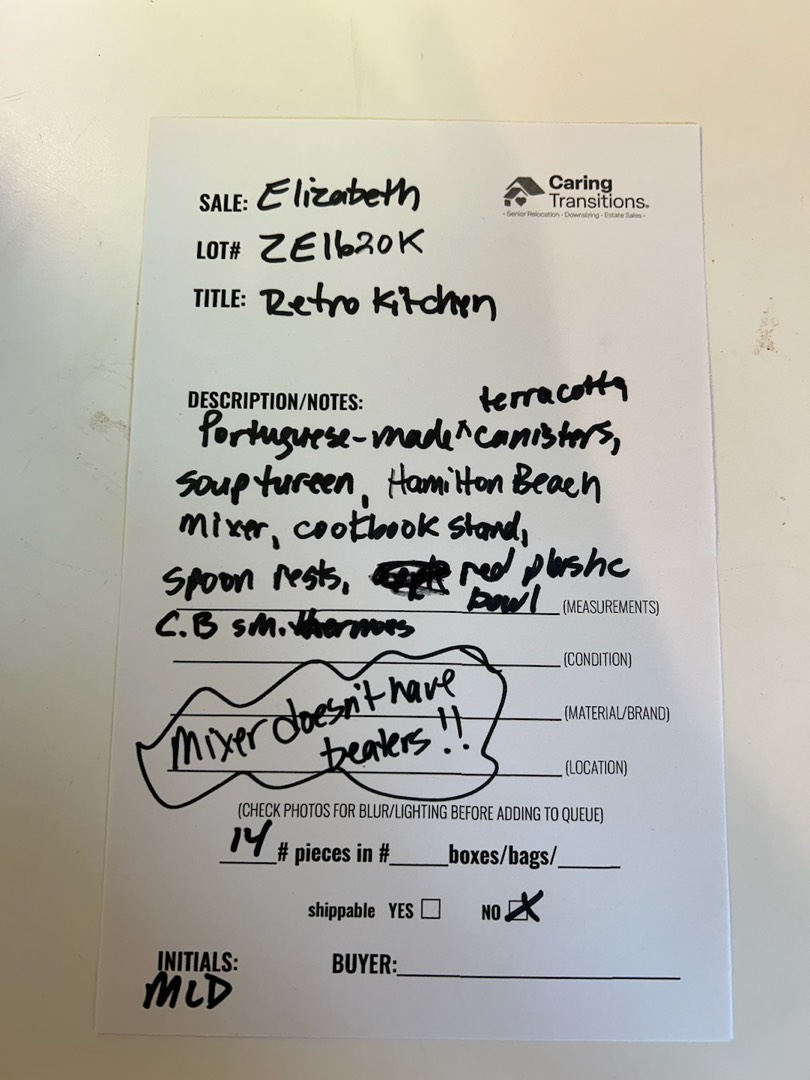 Caring
Transitions.
- Senior Relocation - Downsizing - Estate Sales -
SALE: Elizabeth
LOT# ZE1620K
TITLE: Retro Kitchen
DESCRIPTION/NOTES:
terracotta
Portuguese-made ^ canisters,
soup tureen, Hamilton Beach
mixer, cookbook stand,
spoon rests, red plastic
bowl (MEASUREMENTS)
C.B sm. thermos
(CONDITION)
Mixer doesn't have
(MATERIAL/BRAND)
beaters!!
(LOCATION)
(CHECK PHOTOS FOR BLUR/LIGHTING BEFORE ADDING TO QUEUE)
14 # pieces in #_____boxes/bags/_____
shippable YES ☐ NO ☒
INITIALS: BUYER:
MLD